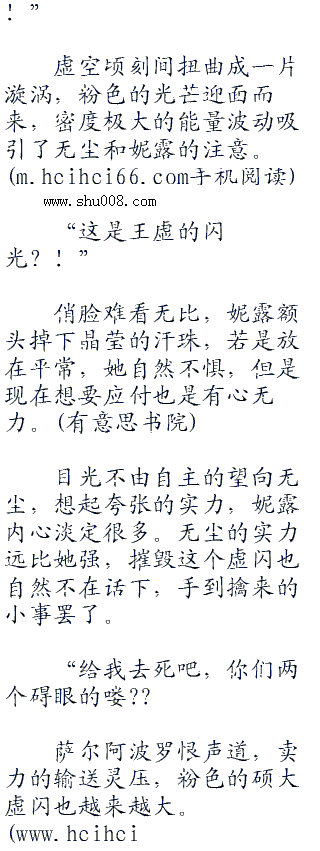 ！”
虚空顷刻间扭曲成一片
漩涡，粉色的光芒迎面而
来，密度极大的能量波动吸
引了无尘和妮露的注意。
(m.hcihci66.com手机阅读)
www.shu008.com
“这是王虚的闪
光？！”
俏脸难看无比，妮露额
头掉下晶莹的汗珠，若是放
在平常，她自然不惧，但是
现在想要应付也是有心无
力。(有意思书院)
目光不由自主的望向无
尘，想起夸张的实力，妮露
内心淡定很多。无尘的实力
远比她强，摧毁这个虚闪也
自然不在话下，手到擒来的
小事罢了。
“给我去死吧，你们两
个碍眼的喽??
萨尔阿波罗恨声道，卖
力的输送灵压，粉色的硕大
虚闪也越来越大。
(www.hcihci